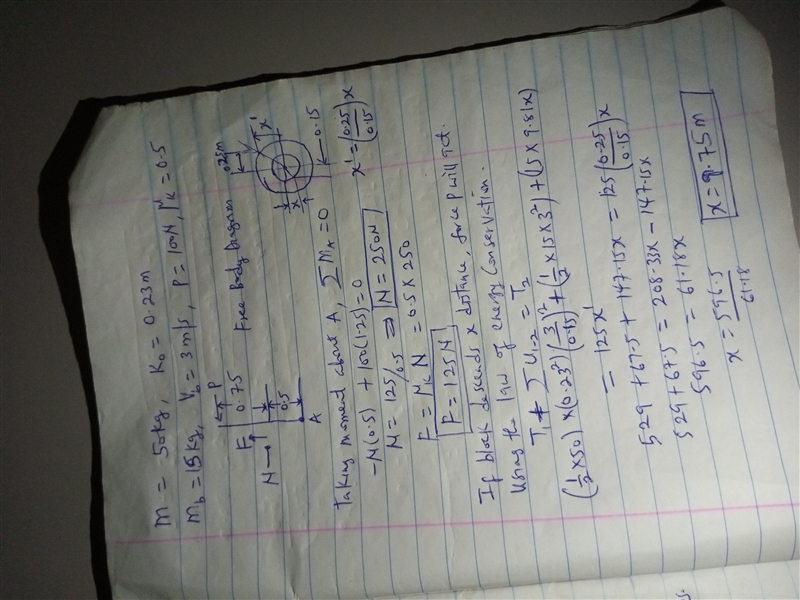 m = 50kg, K0 = 0.23m
mb = 15kg, Vb = 3m/s, P = 100N, μk = 0.5
Free Body Diagram
F
P
0.75
N →
0.5
A
0.25m
x'
x
0.15
Taking moment above A, ∑MA = 0
-N(0.5) + 100(1.25) = 0
x' = (0.25/0.15)x
N = 125/0.5 ⇒ N = 250N
F = μk N = 0.5 x 250
F = 125N
If block descends x distance, force P will act.
Using the law of energy conservation.
T1 + ∑U1-2 = T2
(1/2 x 50) x (0.23²) (3/0.15)² + (1/2 x 15 x 3²) + (15 x 9.81x)
= 125x'
529 + 67.5 + 147.15x = 125(0.25/0.15)x
529 + 67.5 = 208.33x - 147.15x
596.5 = 61.18x
x = 596.5/61.18
x = 9.75m